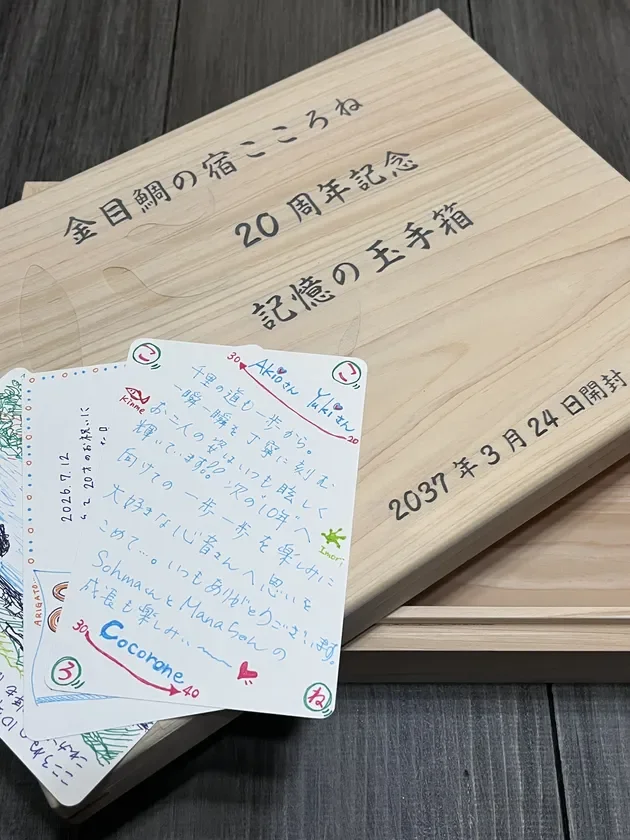 金目鯛の宿こころね
20周年記念
記憶の玉手箱
2037年3月24日開封
こ
こ
30 Akioさん Yukiさん
20
Kinme
千里の道も一歩から。
一瞬一瞬を丁寧に刻む
お二人の姿はいつも眩しく
輝いています!! 次の"10年"へ
向けての一歩一歩を楽しみに
大好きな心音さんへ思いを
こめて…。いつもありがとうございます。
SohmaくんとManaちゃんの
成長も楽しみ…
Imori
30
Cocorone
40
ろ
ね
2026.7.12
20才のお祝いに
ARIGATO